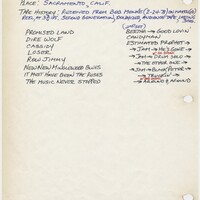 PLACE: SACRAMENTO, CALIF.
TAPE HISTORY: RECEIVED FROM BOB MENKE (2-20-78) ON MAXELL
REEL, AT 3¾ IPS, SECOND GENERATION, DOLBYIZED, AUDIENCE TAPE,
PROMISED LAND
DIRE WOLF
CASSIDY
LOSER
ROW JIMMY
NEW NEW MINGLEWOOD BLUES
IT MUST HAVE BEEN THE ROSES
THE MUSIC NEVER STOPPED
BERTHA → GOOD LOVIN'
CANDYMAN
ESTIMATED PROPHET →
→ JAM → HE'S GONE →
→ JAM → DRUM SOLO →
→ THE OTHER ONE →
→ JAM → BLACK PETER →
→ TRUCKIN' →
→ AROUND & AROUND